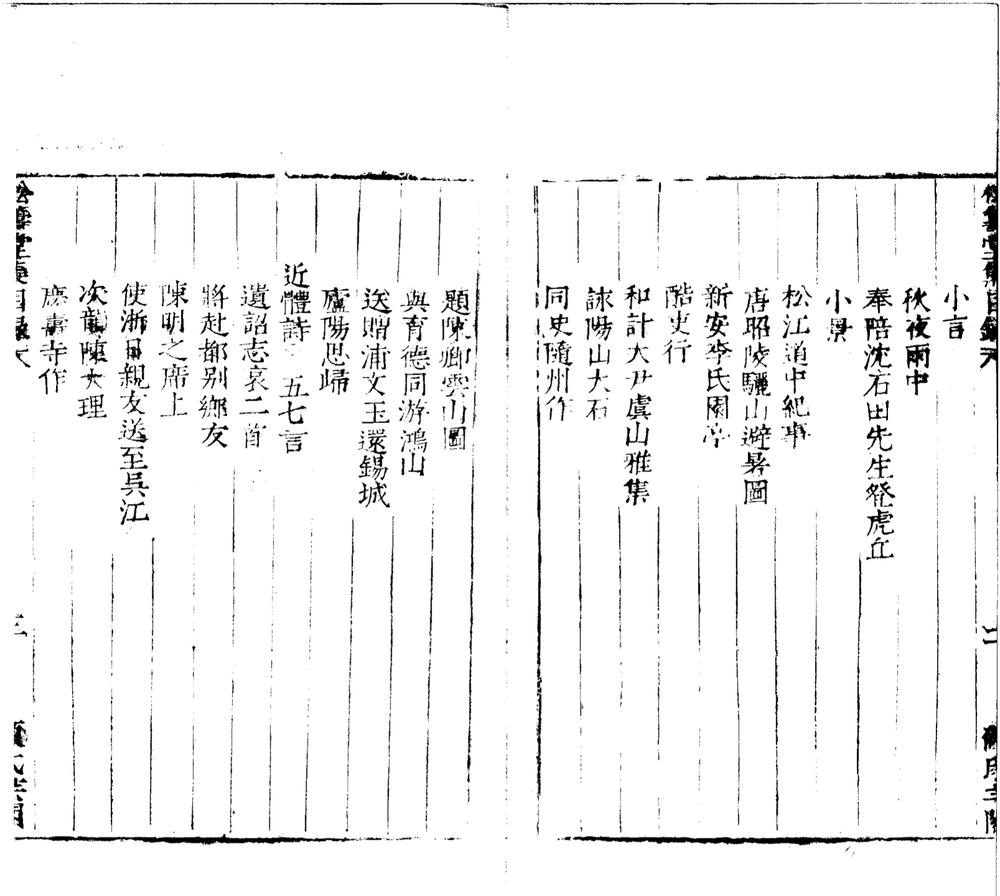 小言
秋夜雨中
奉陪沈石田先生登虎丘
小景
松江道中紀事
唐昭陵驪山避暑圖
新安李氏園亭
酷吏行
和計大尹虞山雅集
詠陽山大石
同史隨州作
二
題陳卿雲山圖
與育德同游鴻山
送贈浦文玉還錫城
廬陽思歸
近體詩 五七言
遺詔志哀二首
將赴都别鄉友
陳明之席上
使浙日親友送至吳江
次韻陳大理
慶壽寺作
三